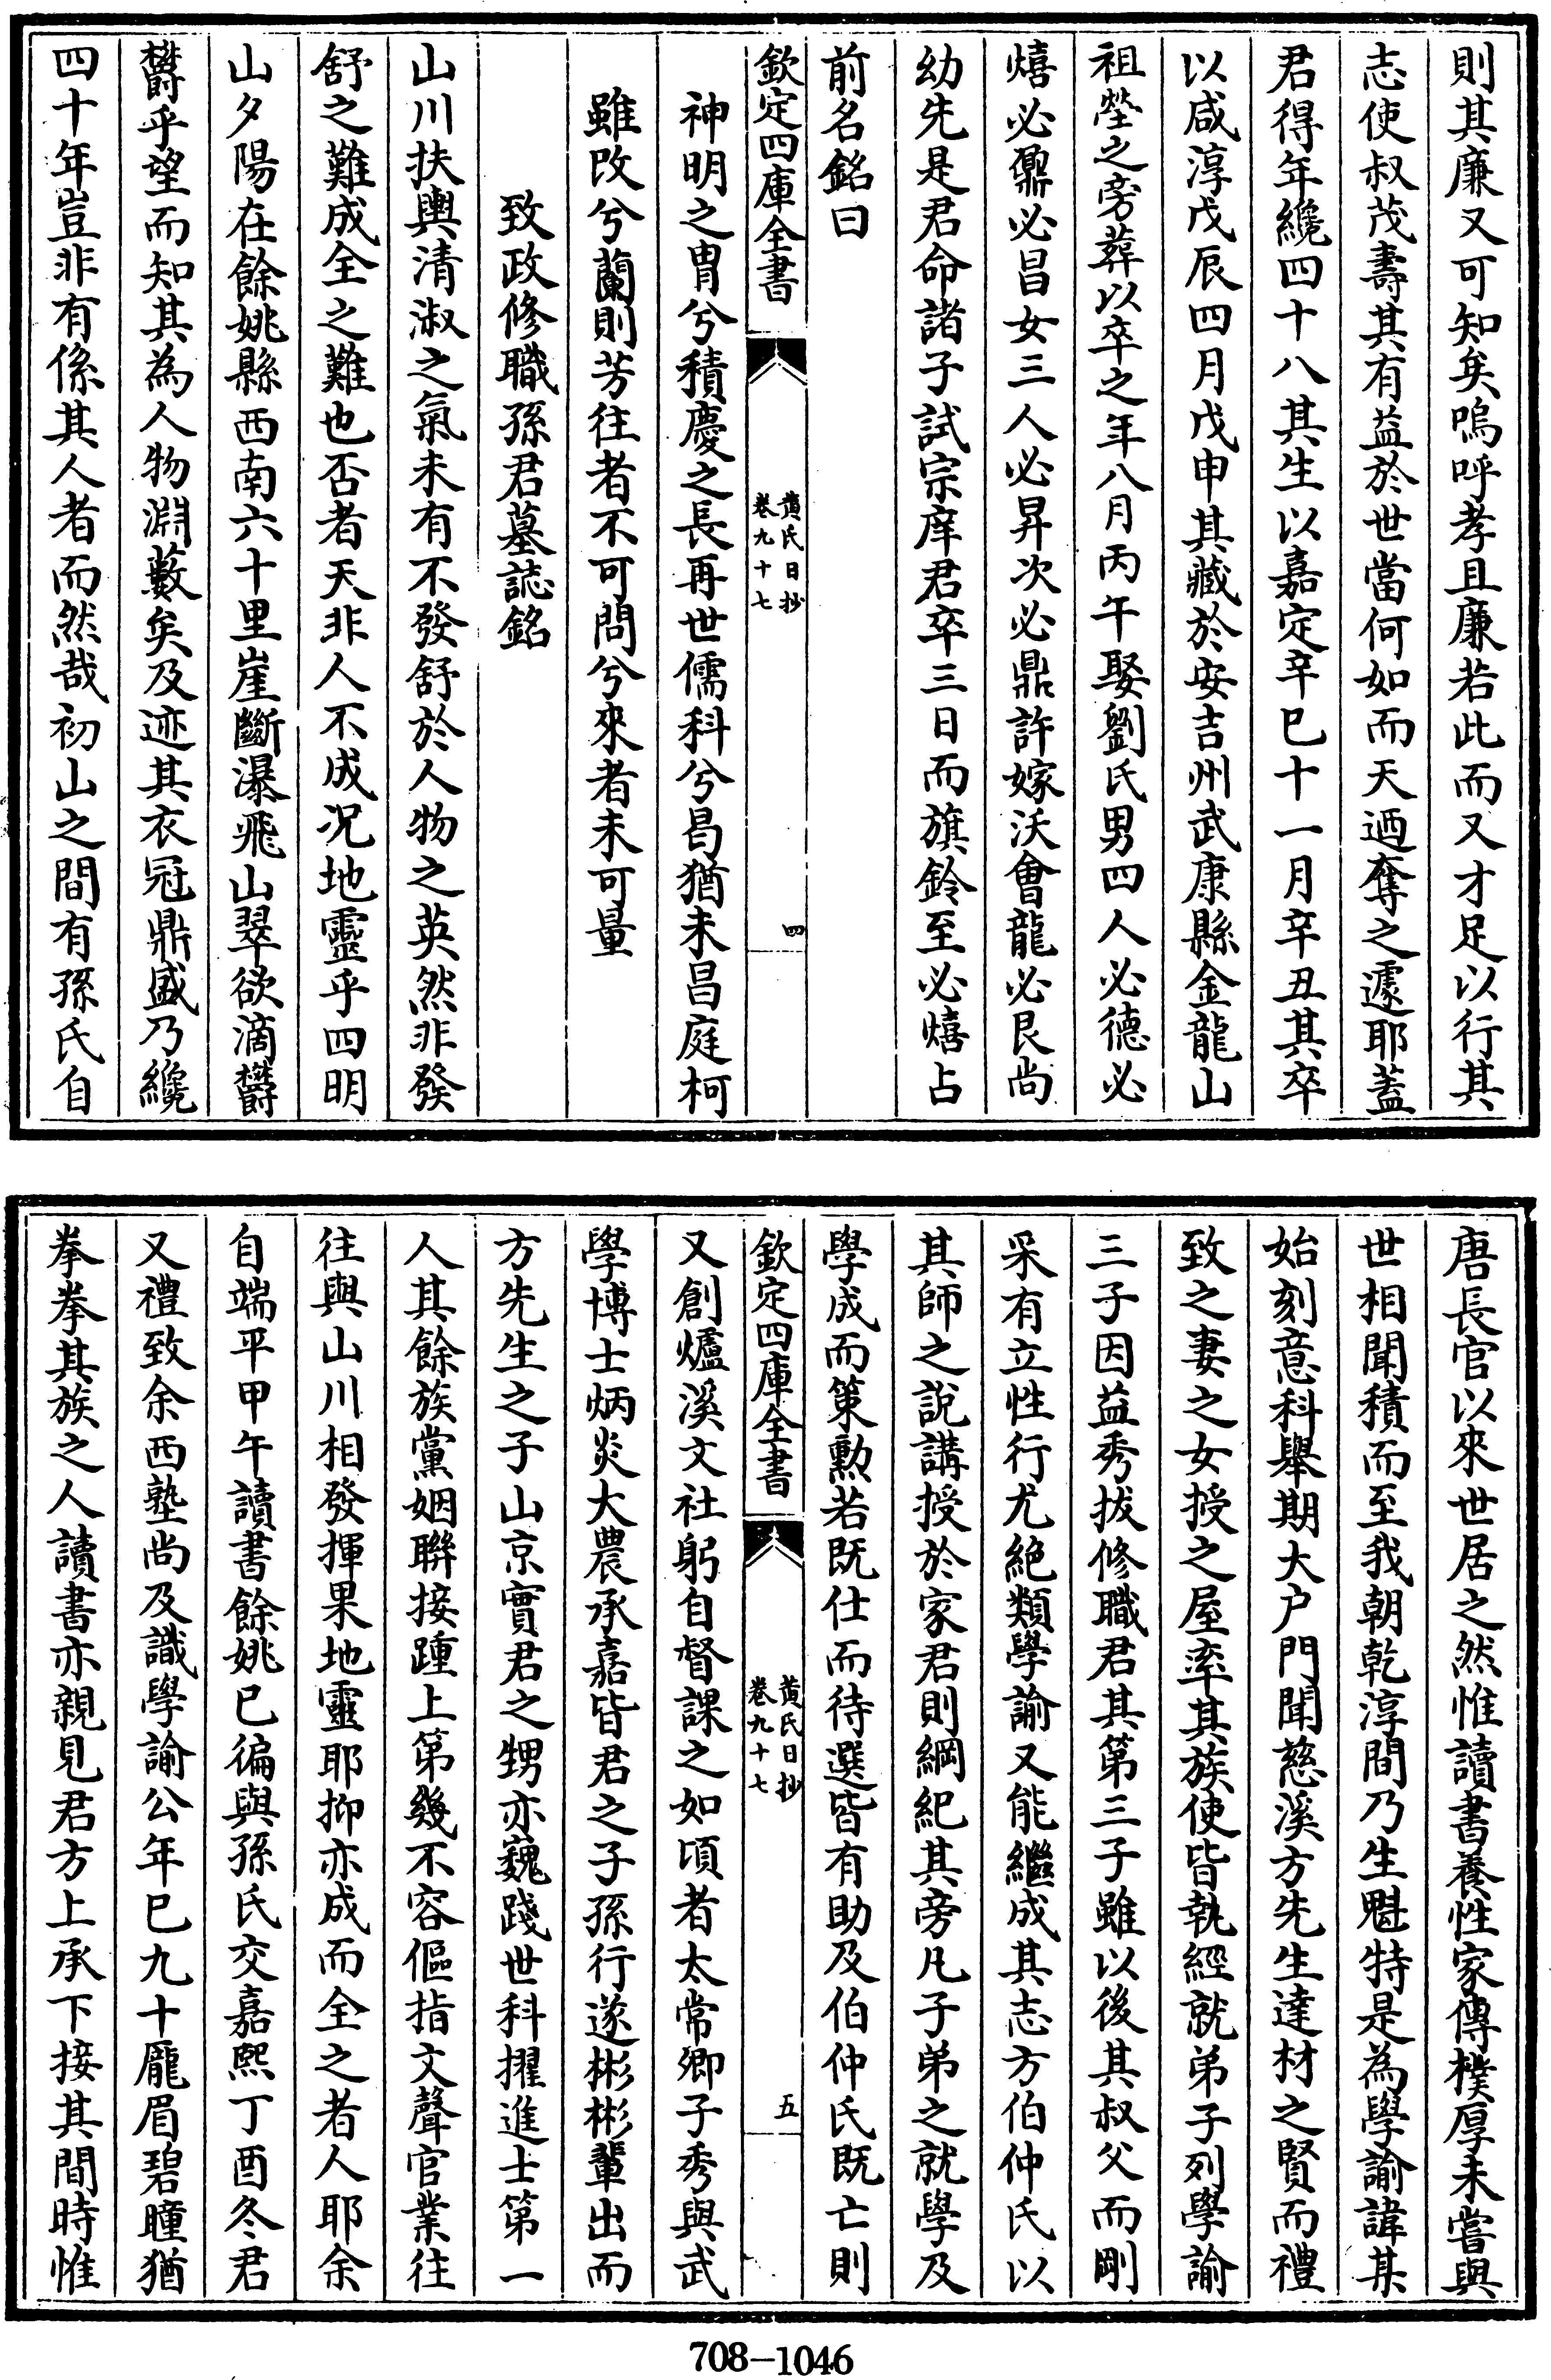 則其廉又可知矣嗚呼孝且廉若此而又才足以行其
志使叔茂壽其有益於世當何如而天迺奪之遽耶蓋
君得年纔四十八其生以嘉定辛巳十一月辛丑其卒
以咸淳戊辰四月戊申其藏於安吉州武康縣金龍山
祖塋之旁葬以卒之年八月丙午娶劉氏男四人必德必
熺必鼐必昌女三人必昇次必鼎許嫁沃會龍必艮尚
幼先是君命諸子試宗庠君卒三日而旗鈴至必熺占
前名銘曰
欽定四庫全書
黄氏日抄
卷九十七
四
神明之胄兮積慶之長再世儒科兮曷猶未昌庭柯
雖改兮蘭則芳往者不可問兮來者未可量
致政修職孫君墓誌銘
山川扶輿清淑之氣未有不發舒於人物之英然非發
舒之難成全之難也否者天非人不成况地靈乎四明
山夕陽在餘姚縣西南六十里崖斷瀑飛山翠欲滴欝
欝乎望而知其為人物淵藪矣及迹其衣冠鼎盛乃纔
四十年豈非有係其人者而然哉初山之間有孫氏自
唐長官以來世居之然惟讀書養性家傳樸厚未嘗與
世相聞積而至我朝乾淳間乃生魁特是為學諭諱某
始刻意科舉期大户門聞慈溪方先生達材之賢而禮
致之妻之女授之屋率其族使皆執經就弟子列學諭
三子因益秀拔修職君其第三子雖以後其叔父而剛
采有立性行尤絶類學諭又能繼成其志方伯仲氏以
其師之説講授於家君則綱紀其旁凡子弟之就學及
學成而策勲若既仕而待選皆有助及伯仲氏既亡則
欽定四庫全書
黄氏日抄
卷九十七
五
又創爐溪文社躬自督課之如頃者太常卿子秀與武
學博士炳炎大農承嘉皆君之子孫行遂彬彬輩出而
方先生之子山京實君之甥亦巍踐世科擢進士第一
人其餘族黨姻聯接踵上第幾不容傴指文聲官業往
往與山川相發揮果地靈耶抑亦成而全之者人耶余
自端平甲午讀書餘姚已徧與孫氏交嘉熙丁酉冬君
又禮致余西塾尚及識學諭公年已九十龎眉碧瞳猶
拳拳其族之人讀書亦親見君方上承下接其間時惟
708-1046